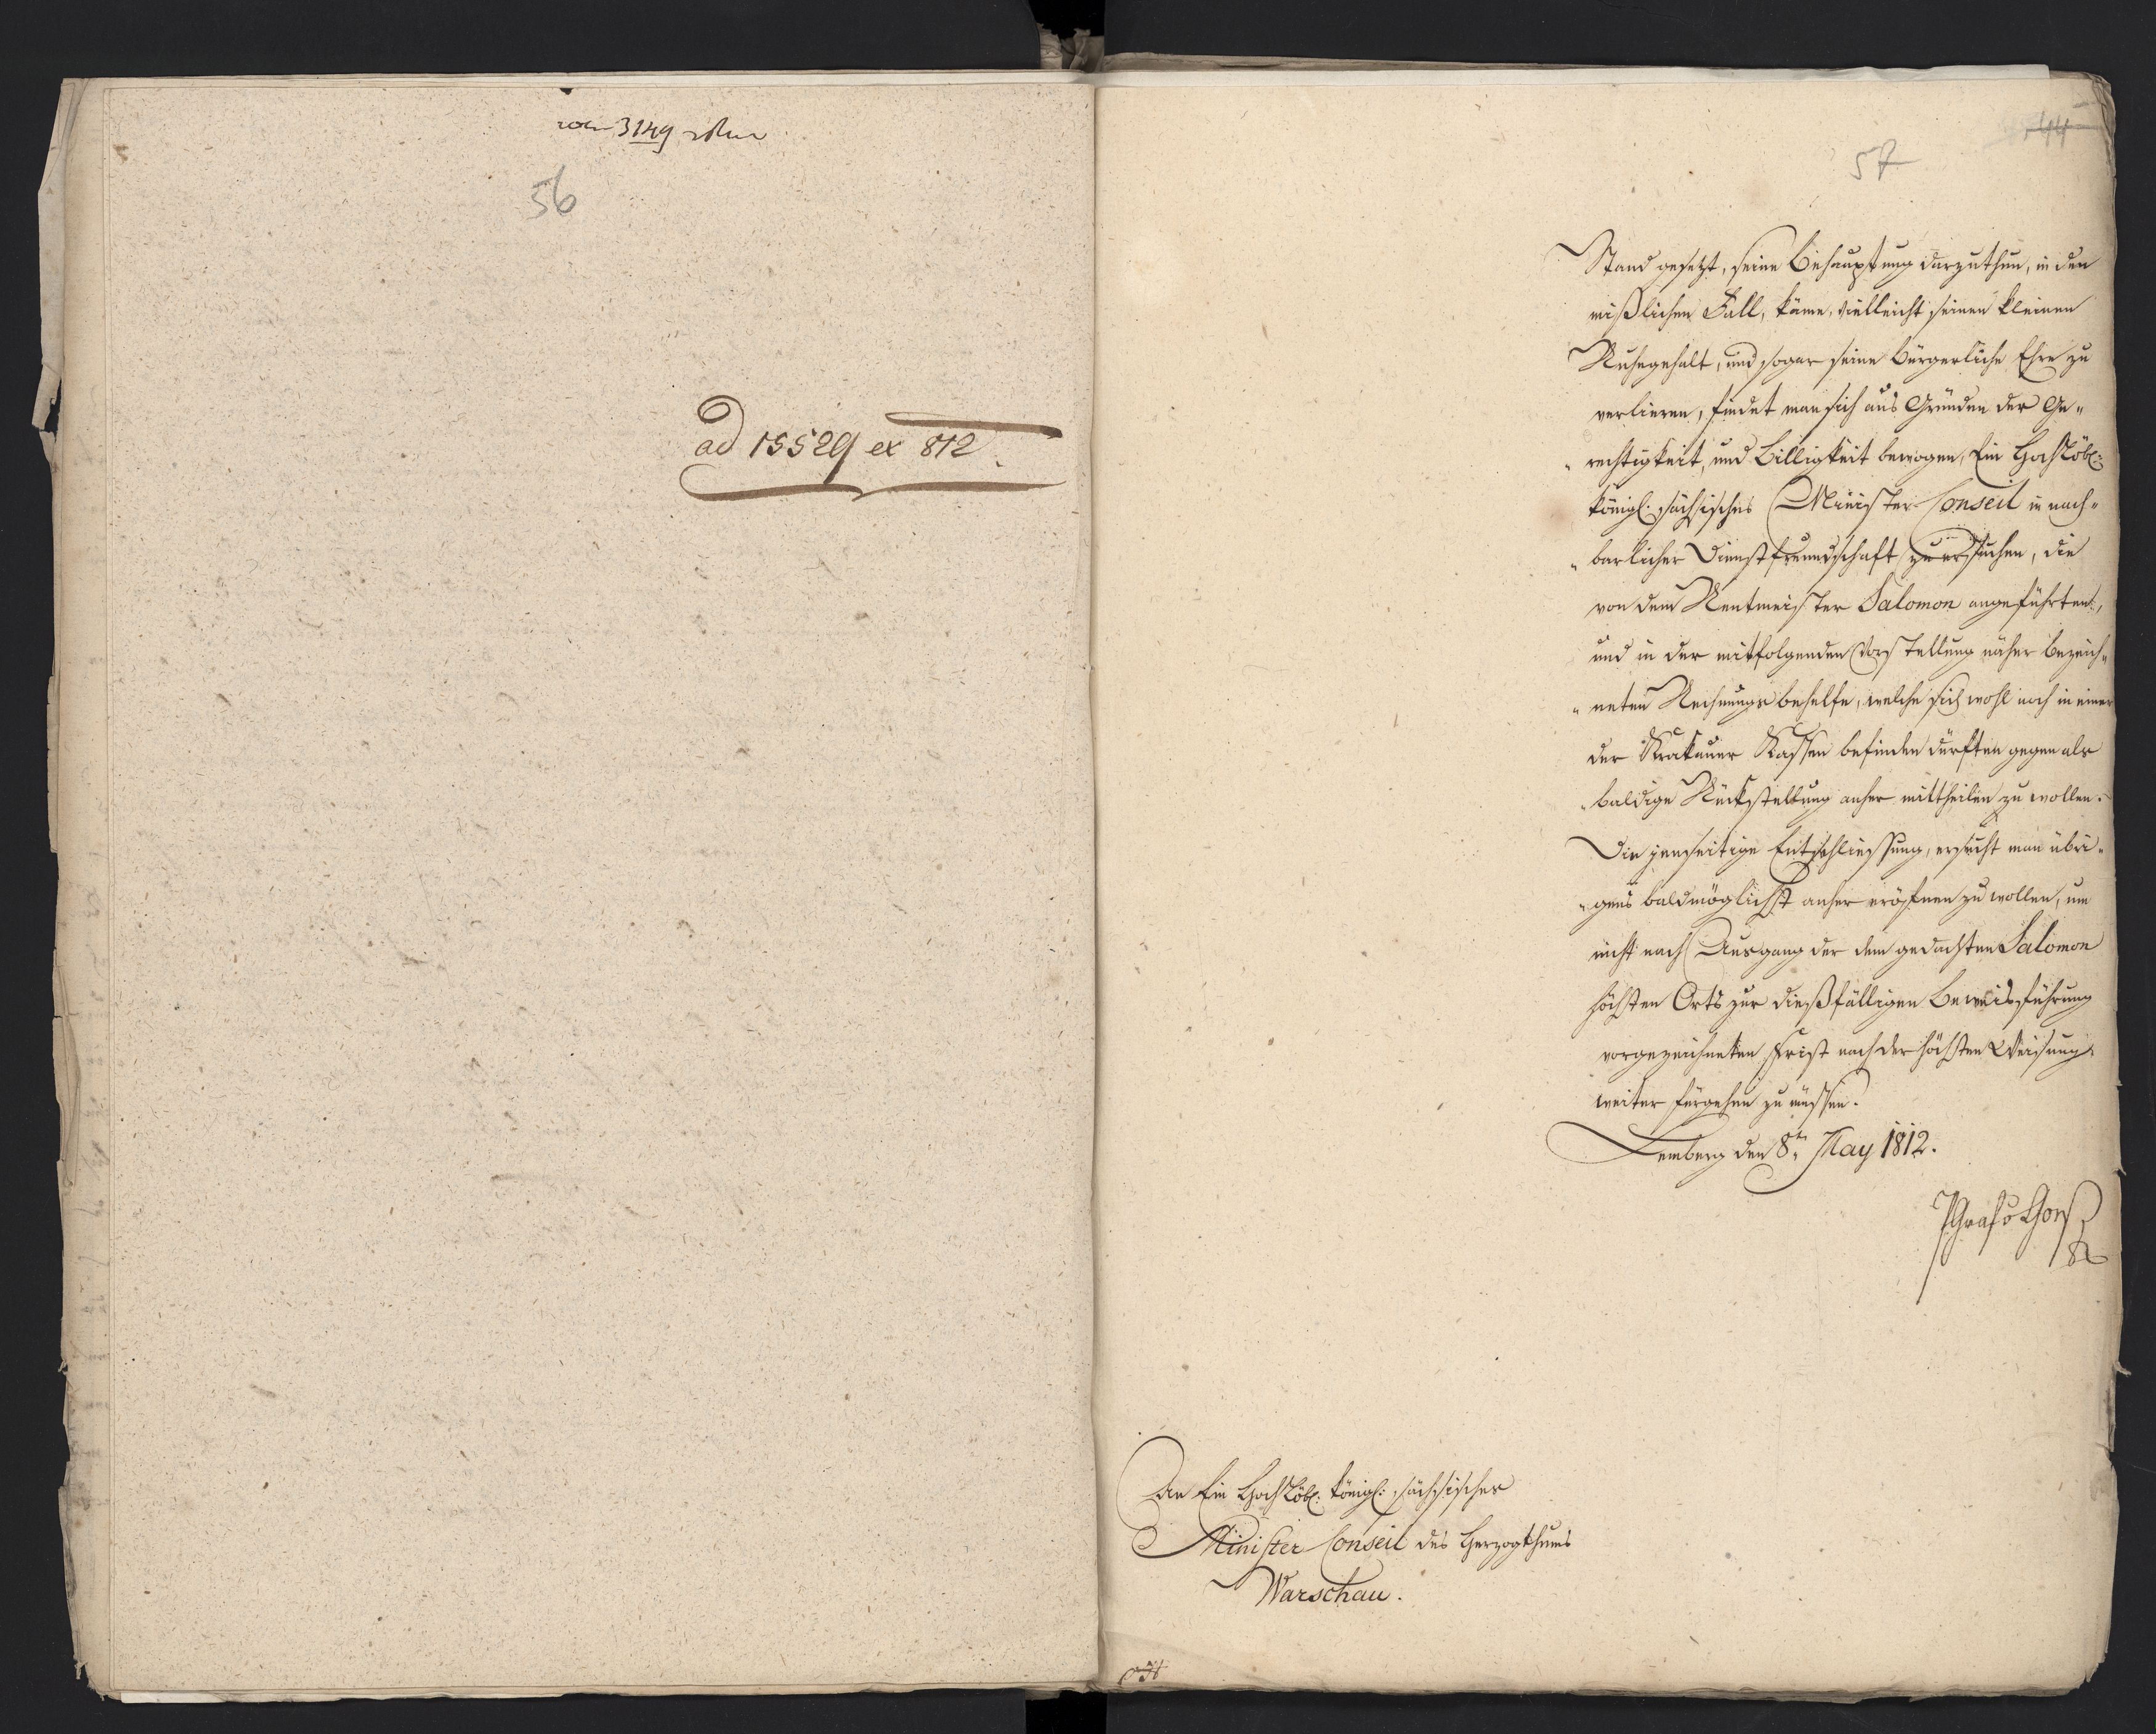 3149
56
ad 15529 ex 812.
44
57
Stand gesetzt, seine Behauptung darzuthun, in den
mißlichen Fall, käme, vielleicht seinen kleinen
Ruhegehalt, und sogar seine bürgerliche Ehre zu
verlieren, findet man sich aus Gründen der Ge„
„rechtigkeit, und Billigkeit bewogen, Ein Hochlöbl:
königl: sächsisches Minister Conseil in nach„
„barlicher Dienstfreundschaft zu ersuchen, die
von dem Rentmeister Salomon angeführten,
und in der mitfolgenden Vorstellung näher bezeich„
„neten Rechnungsbehelfe, welche sich wohl noch in einer
der Krakauer Kassen befinden dürften gegen als
„baldige Rückstellung anher mittheilen zu wollen.
Die jenseitige Entschliessung, ersucht man übri„
„gens baldmöglichst anher eröfnen zu wollen, um
nicht nach Ausgang der dem gedachten Salomon
höchsten Orts zur dießfälligen Beweisführung
vorgezeichneten Frist nach der höchsten Weisung
weiter fürgehen zu müssen.
Lemberg den 8ten May 1812.
An Ein Hochlöbl: königl: sächsisches
Minister Conseil des Herzogthums
Warschau.